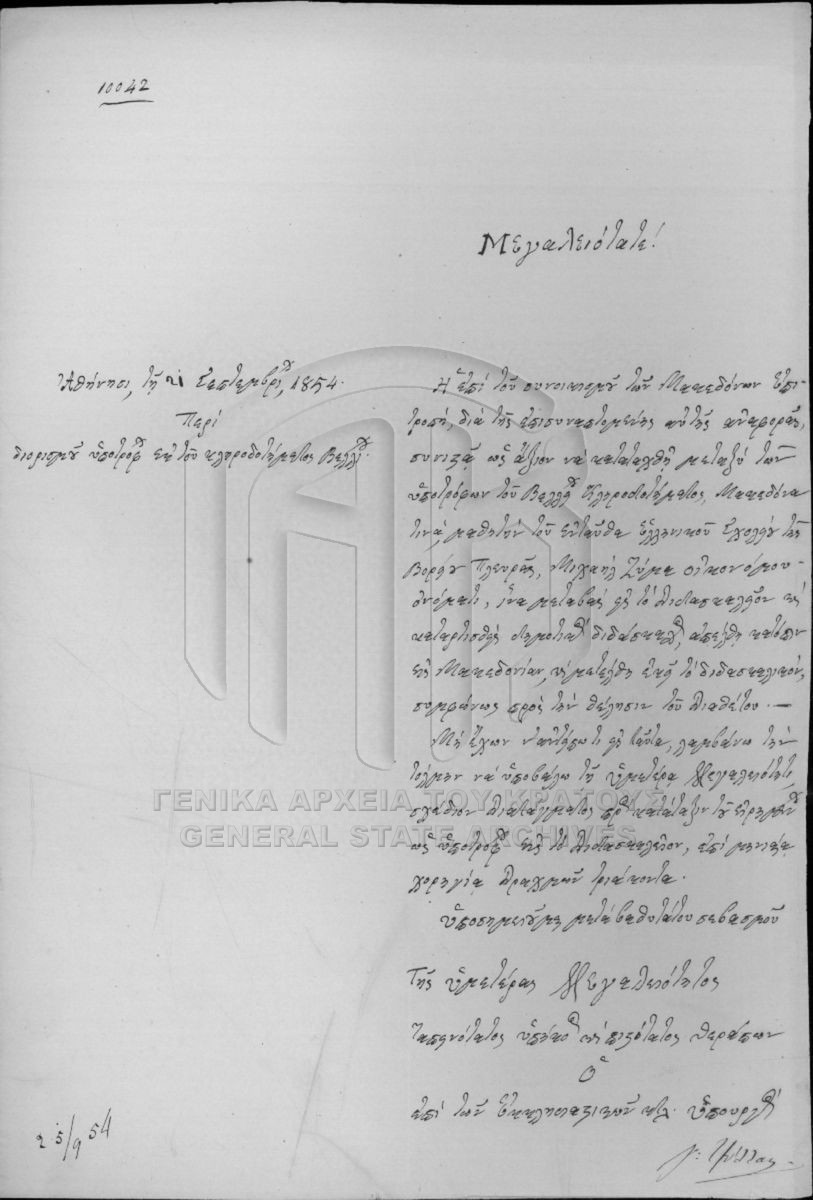 10042
Μεγαλειότατε!
Ἀθήνησι, τῇ 21 Σεπτεμβρίου, 1854.
Περὶ
διορισμοῦ ὑποτρόφ. ἐκ τοῦ κληροδοτήματος Βελλίου.
Ἡ ἐπὶ τοῦ συνοικισμοῦ τῶν Μακεδόνων ἐπι-
τροπή, διὰ τῆς ἐπισυναπτομένης αὐτῆς ἀναφορᾶς,
ὡς ἄξιον νὰ καταταχθῇ μεταξὺ τῶν
ὑποτρόφων τοῦ Βελλίου κληροδοτήματος, Μακεδόνα
τινά, μαθητὴν τοῦ ἐνταῦθα ἑλληνικοῦ σχολείου τῆς
Βορείου Πλευρᾶς, Μιχαὴλ Ζήμα οἰκονόμου
ὀνόματι, ἵνα μεταβὰς εἰς τὸ διδασκαλεῖον καὶ
καταρτισθεὶς δημοτικὸς διδάσκαλος, ἀπέλθῃ κατόπιν
εἰς Μακεδονίαν, καὶ μετέλθῃ ἐκεῖ τὸ διδασκαλικόν,
συμφώνως πρὸς τὴν θέλησιν τοῦ διαθέτου. —
Μὴ ἔχων τι εἰς ταῦτα, λαμβάνω τὴν
τόλμην νὰ ὑποβάλω τῇ ὑμετέρᾳ Μεγαλειότητι
σχέδιον διατάγματος πρὸς κατάταξιν τοῦ εἰρημένου
ὡς ὑποτρόφου εἰς τὸ διδασκαλεῖον, ἐπὶ μηνιαίᾳ
χορηγίᾳ δραχμῶν τριάκοντα.
Ὑποσημειοῦμαι μετὰ βαθυτάτου σεβασμοῦ
Τῆς ὑμετέρας Μεγαλειότητος
ταπεινότατος ὑπήκοος καὶ πιστότατος θεράπων
Ὁ
ἐπὶ τῶν Ἐκκλησιαστικῶν κτλ. Ὑπουργὸς
Γ. Ψύλλας
25/9 54
ΓΕΝΙΚΑ ΑΡΧΕΙΑ ΤΟΥ ΚΡΑΤΟΥΣ
GENERAL STATE ARCHIVES